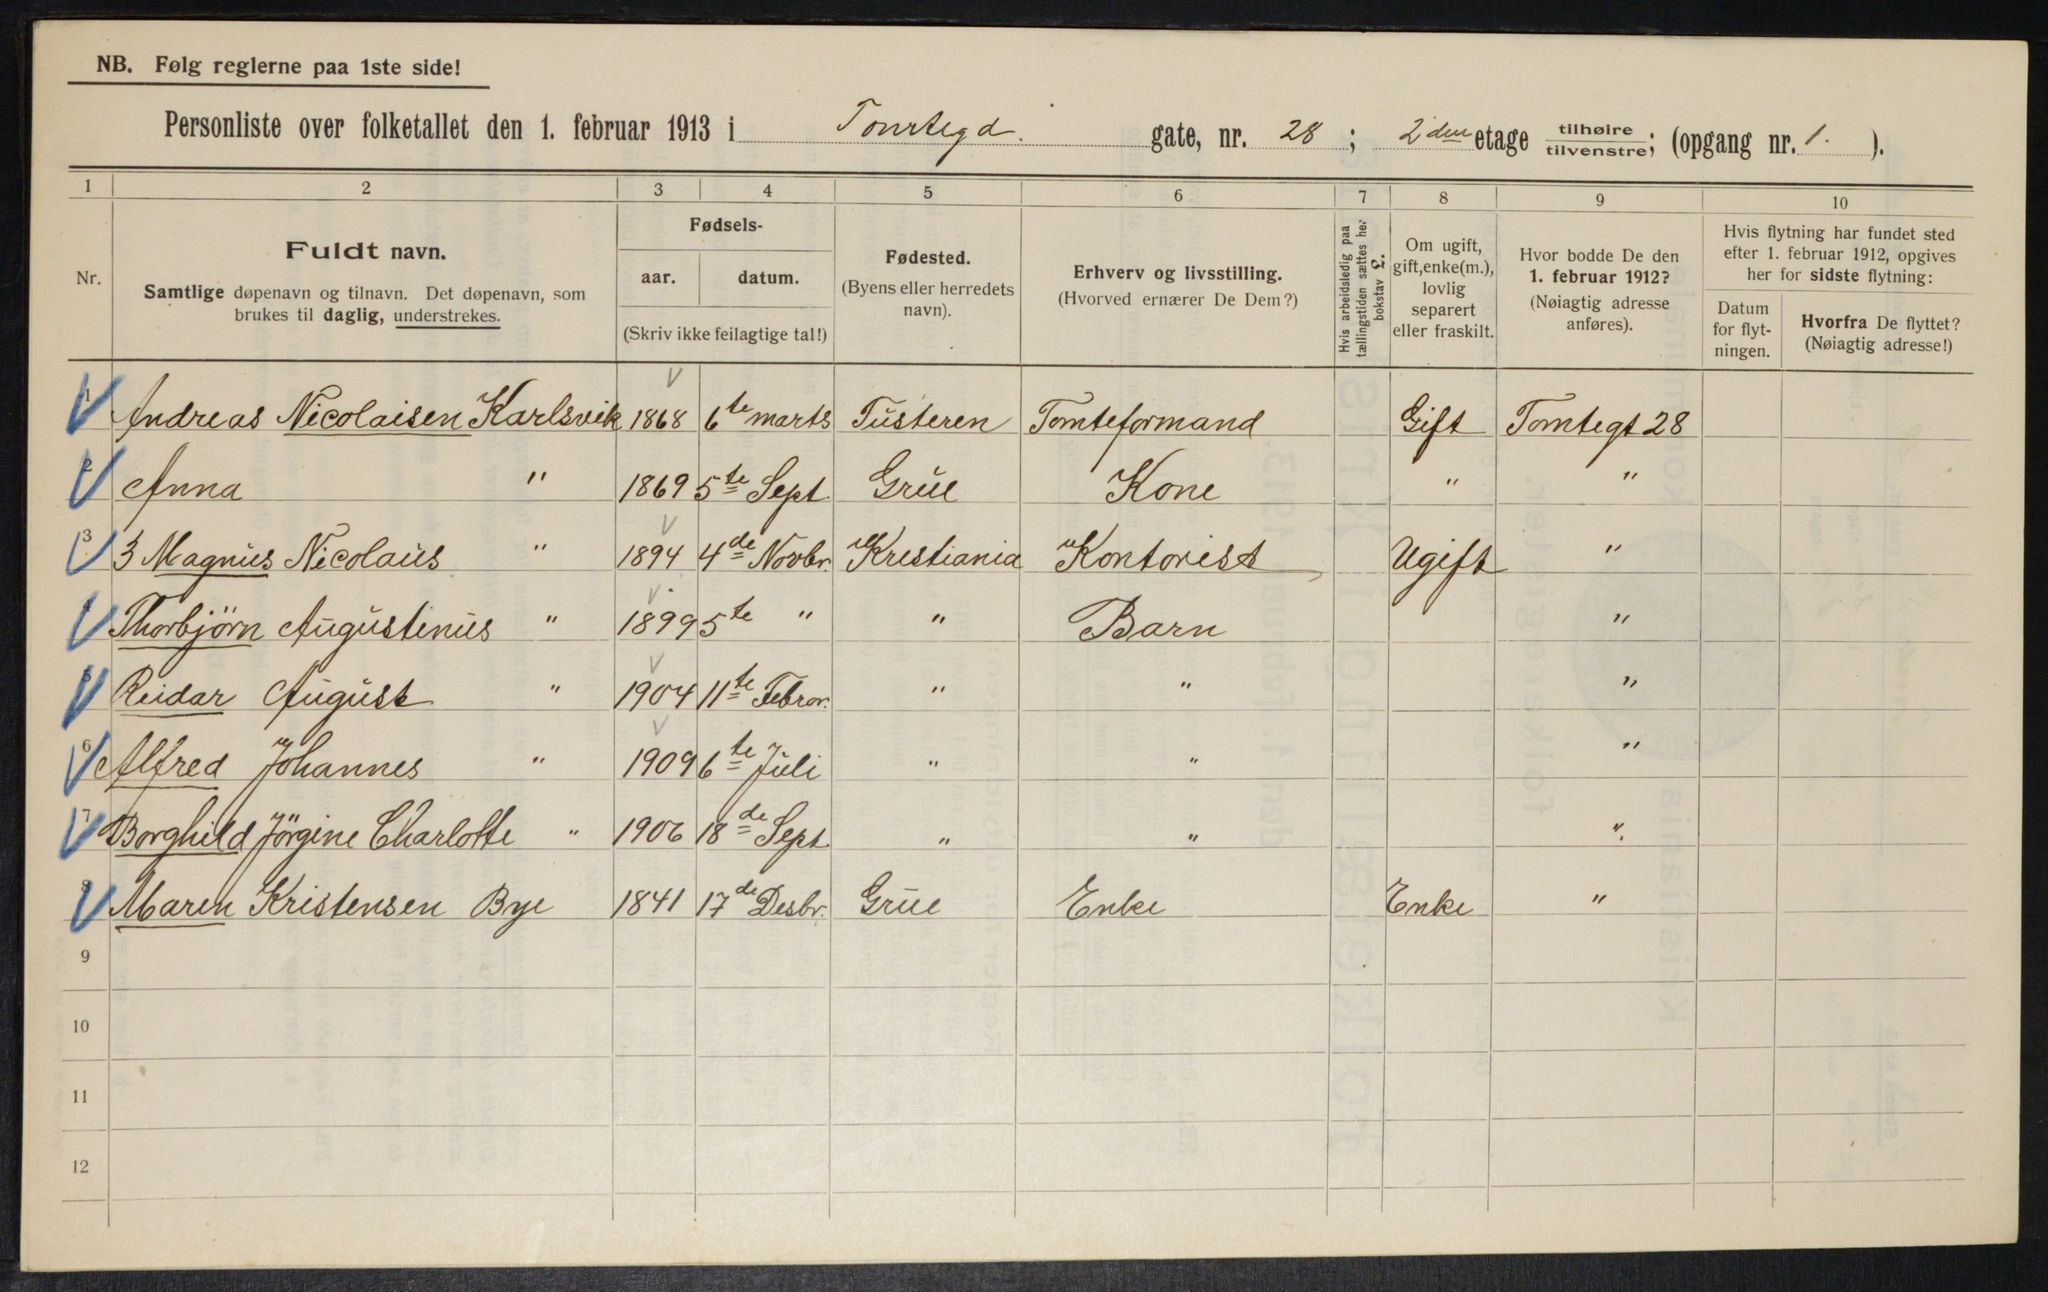 NB. Følg reglerne paa 1ste side!
Personliste over folketallet den 1. februar 1913 i Tomtegd. gate, nr. 28 ; 2 den etage tilhøire tilvenstre; (opgang nr. 1. ).
1 2 3 4 5 6 7 8 9 10
Nr.
Fuldt navn.
Samtlige døpenavn og tilnavn. Det døpenavn, som
brukes til daglig, understrekes.
Fødsels-
aar. datum.
(Skriv ikke feilagtige tal!)
Fødested.
(Byens eller herredets
navn).
Erhverv og livsstilling.
(Hvorved ernærer De Dem?)
Hvis arbeidsledig paa
tællingstiden sættes her
bokstav L.
Om ugift,
gift, enke(m.),
lovlig
separert
eller fraskilt.
Hvor bodde De den
1. februar 1912?
(Nøiagtig adresse
anføres).
Hvis flytning har fundet sted
efter 1. februar 1912, opgives
her for sidste flytning:
Datum
for flyt-
ningen.
Hvorfra De flyttet?
(Nøiagtig adresse!)
1 Andreas Nicolaisen Karlsvik 1868 6te marts Tusteren Tomteformand Gift Tomtegt 28
2 Anna " 1869 5te Sept. Grue Kone " "
3 3 Magnus Nicolaus " 1894 4de Novbr. Krestiania Kontorist Ugift "
Thorbjörn Augustinus " 1899 5te " " Barn "
5 Reidar August " 1904 11te Febror. " " "
6 Alfred Johannes " 1909 6te Juli " " "
7 Borghild Jörgine Charlotte " 1906 18de Sept. " " "
8 Maren Kristensen Bye 1841 17de Desbr. Grue Enke Enke "
9
10
11
12